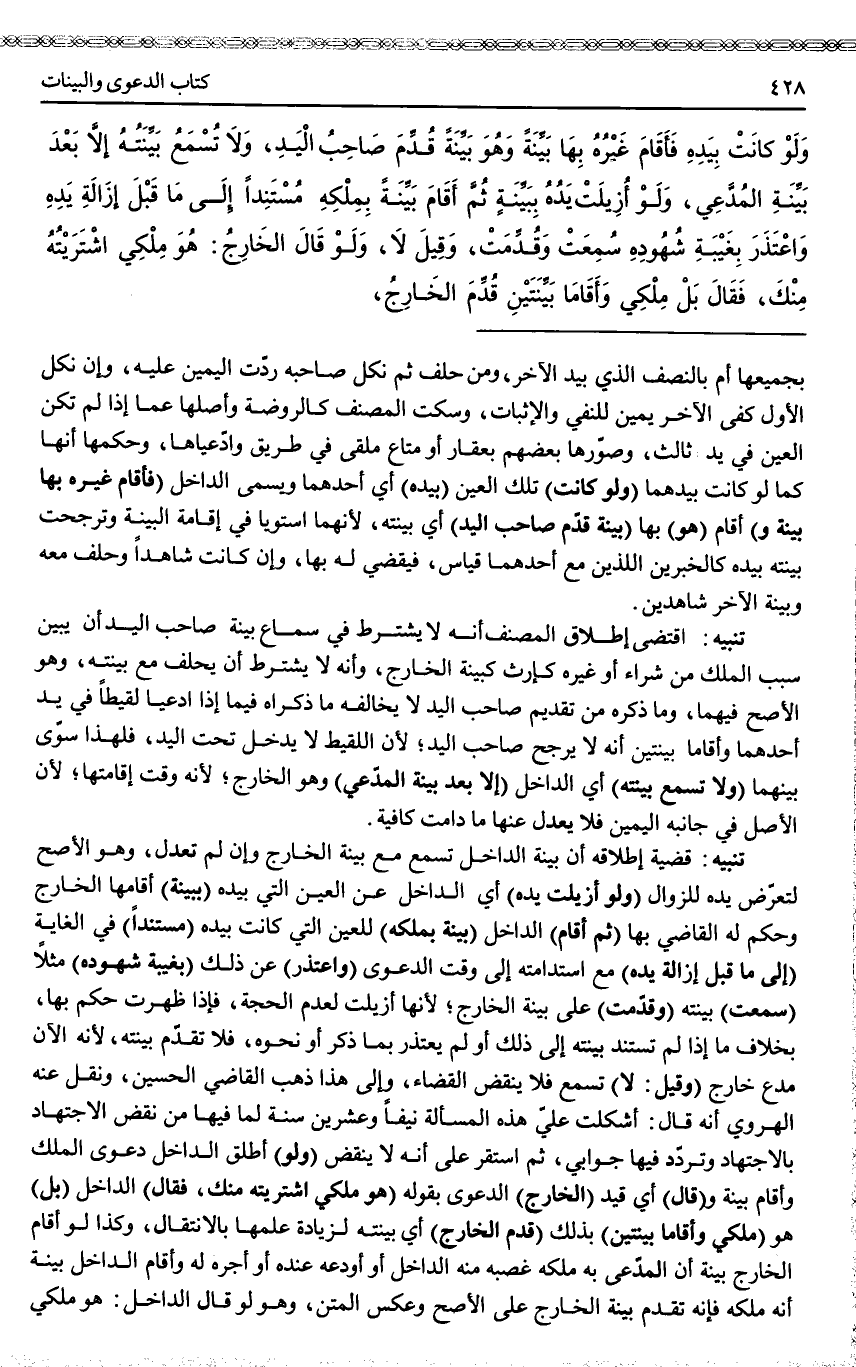 ٤٢٨ كتاب الدعوى والبينات
وَلَوْ كانَتْ بِيَدِهِ فَأَقَامَ غَيْرُهُ بِهَا بَيِّنَةً وَهُوَ بَيِّنَةً قُدِّمَ صَاحِبُ الْيَدِ، وَلَا تُسْمَعُ بَيِّنَتُهُ إلَّا بَعْدَ
بَيِّنَةِ المُدَّعِي، وَلَوْ أُزِيلَتْ يَدُهُ بِبَيِّنَةٍ ثُمَّ أَقَامَ بَيِّنَةً بِمِلْكِهِ مُسْتَنِداً إِلَى مَا قَبْلَ إِزَالَةِ يَدِهِ
وَاعْتَذَرَ بِغَيْبَةِ شُهُودِهِ سُمِعَتْ وَقُدِّمَتْ، وَقِيلَ لَا، وَلَوْ قَالَ الخَارِجُ: هُوَ مِلْكِي اشْتَرَيْتُهُ
مِنْكَ، فَقَالَ بَلْ مِلْكِي وَأَقَامَا بَيِّنَتَيْنِ قُدِّمَ الخَارِجُ،
بجميعها أم بالنصف الذي بيد الآخر، ومن حلف ثم نكل صاحبه ردّت اليمين عليه، وإن نكل
الأول كفى الآخر يمين للنفي والإثبات، وسكت المصنف كالروضة وأصلها عما إذا لم تكن
العين في يد ثالث، وصوّرها بعضهم بعقار أو متاع ملقى في طريق وادّعياها، وحكمها أنها
كما لو كانت بيدهما (ولو كانت) تلك العين (بيده) أي أحدهما ويسمى الداخل (فأقام غيره بها
بينة و) أقام (هو) بها (بينة قدّم صاحب اليد) أي بينته، لأنهما استويا في إقامة البينة وترجحت
بينته بيده كالخبرين اللذين مع أحدهما قياس، فيقضي له بها، وإن كانت شاهداً وحلف معه
وبينة الآخر شاهدين.
تنبيه: اقتضى إطلاق المصنف أنه لا يشترط في سماع بينة صاحب اليد أن يبين
سبب الملك من شراء أو غيره كإرث كبينة الخارج، وأنه لا يشترط أن يحلف مع بينته، وهو
الأصح فيهما، وما ذكره من تقديم صاحب اليد لا يخالفه ما ذكراه فيما إذا ادعيا لقيطاً في يد
أحدهما وأقاما بينتين أنه لا يرجح صاحب اليد؛ لأن اللقيط لا يدخل تحت اليد، فلهذا سوّى
بينهما (ولا تسمع بينته) أي الداخل (إلا بعد بينة المدّعي) وهو الخارج؛ لأنه وقت إقامتها؛ لأن
الأصل في جانبه اليمين فلا يعدل عنها ما دامت كافية.
تنبيه: قضية إطلاقه أن بينة الداخل تسمع مع بينة الخارج وإن لم تعدل، وهو الأصح
لتعرّض يده للزوال (ولو أزيلت يده) أي الداخل عن العين التي بيده (ببينة) أقامها الخارج
وحكم له القاضي بها (ثم أقام) الداخل (بينة بملكه) للعين التي كانت بيده (مستنداً) في الغاية
(إلى ما قبل إزالة يده) مع استدامته إلى وقت الدعوى (واعتذر) عن ذلك (بغيبة شهوده) مثلاً
(سمعت) بينته (وقدّمت) على بينة الخارج؛ لأنها أزيلت لعدم الحجة، فإذا ظهرت حكم بها،
بخلاف ما إذا لم تستند بينته إلى ذلك أو لم يعتذر بما ذكر أو نحوه، فلا تقدّم بينته، لأنه الآن
مدع خارج (وقيل: لا) تسمع فلا ينقض القضاء، وإلى هذا ذهب القاضي الحسين، ونقل عنه
الهروي أنه قال: أشكلت عليّ هذه المسألة نيفاً وعشرين سنة لما فيها من نقض الاجتهاد
بالاجتهاد وتردّد فيها جوابي، ثم استقر على أنه لا ينقض (ولو) أطلق الداخل دعوى الملك
وأقام بينة و(قال) أي قيد (الخارج) الدعوى بقوله (هو ملكي اشتريته منك، فقال) الداخل (بل)
هو (ملكي وأقاما بينتين) بذلك (قدم الخارج) أي بينته لزيادة علمها بالانتقال، وكذا لو أقام
الخارج بينة أن المدّعى به ملكه غصبه منه الداخل أو أودعه عنده أو أجره له وأقام الداخل بينة
أنه ملكه فإنه تقدم بينة الخارج على الأصح وعكس المتن، وهو لو قال الداخل: هو ملكي